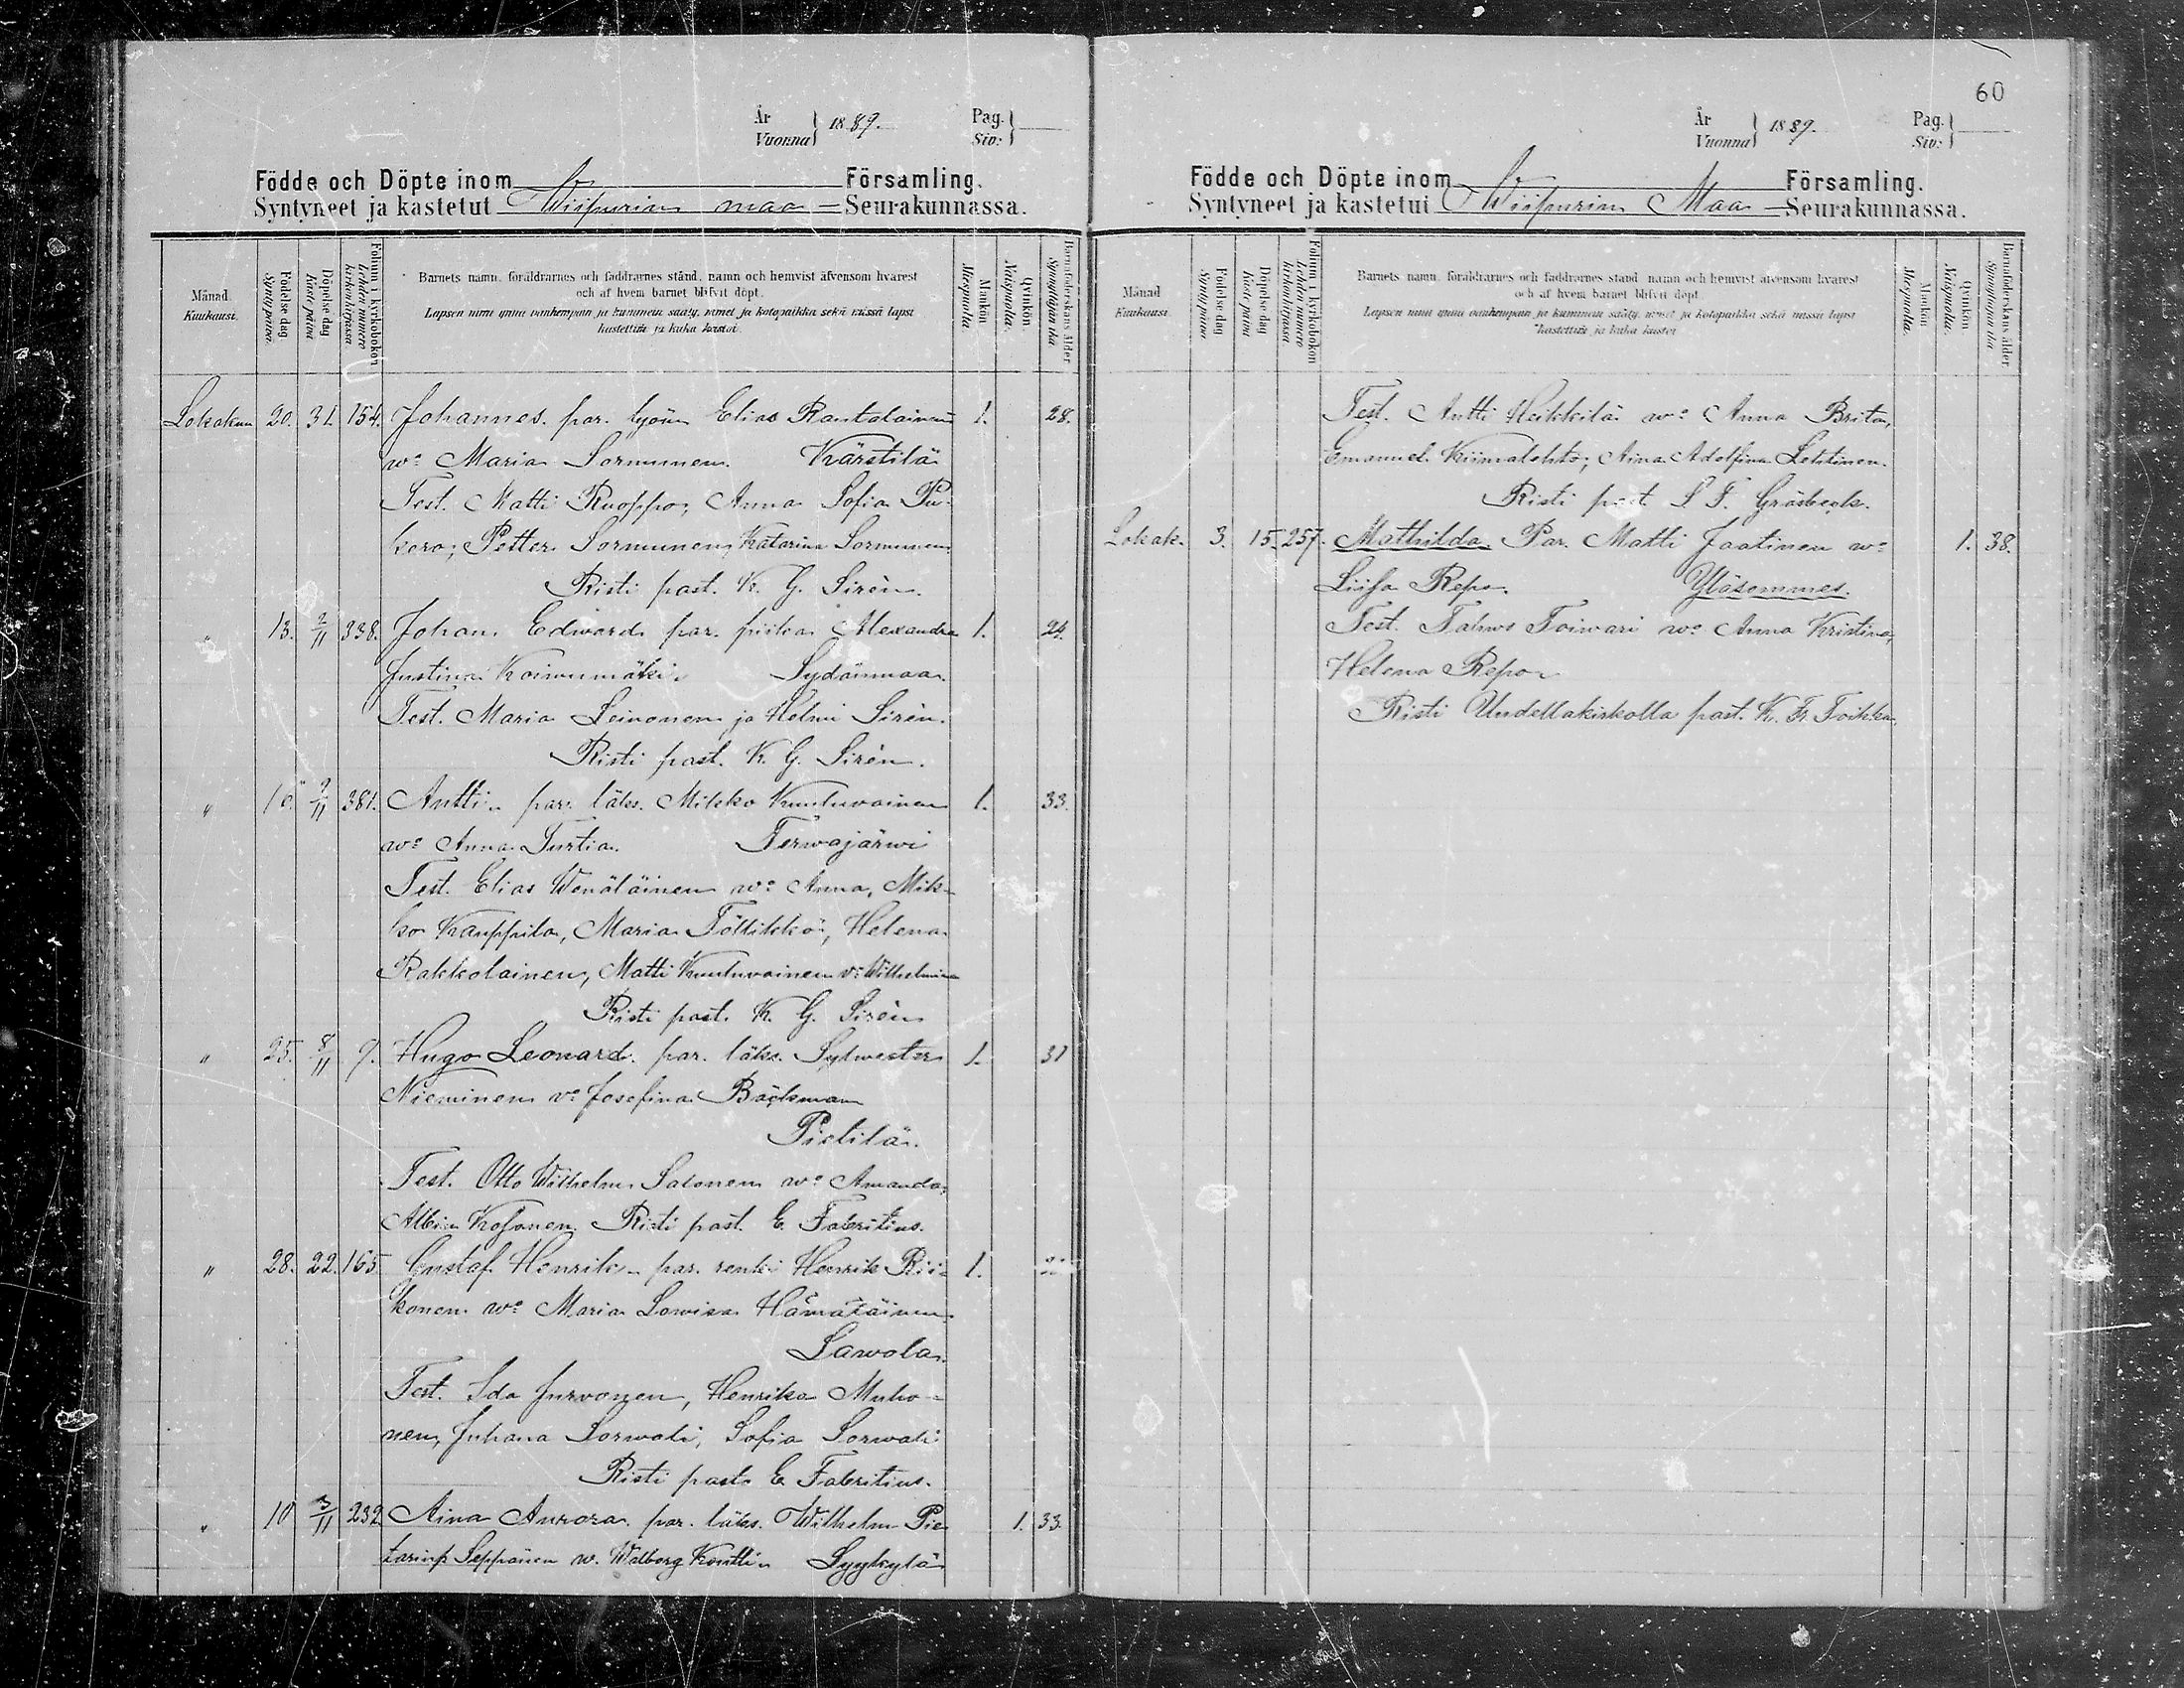 År
Vuonna } 1889.
Pag.
Siv: }
Födde och Döpte inom Församling.
Syntyneet ja kastetut Wiipurian maa – Seurakunnassa.
Månad.
Kuukausi.
Födelse dag
Syntypäiva.
Döpelse dag
Kaste päiva
Folium i kyrkoboken
Lehden numero
kirkonkirjassa
Barnets namn, föräldrarnes och faddrarnes stånd, namn och hemvist äfvensom hvarest
och af hvem barnet blifvit döpt.
Lapsen nimi ynnä vanhempain ja kummein sääty, nimet ja kotopaikka sekä missä lapsi
kastettiin ja kuka kastoi
Mankön
Miespuolia.
Qvinkön
Naispuolia.
Barnaföderskans ålder
Synnyttäjän ikä
Lokakuu 20. 31. 154. Johannes. par. työm Elias Rantalainen 1. 28.
wo Maria Sormunen. Kärstilä
Test. Matti Ruoppo, Anna Sofia Pu-
kero, Petter Sormunen, Katarina Sormunen
Risti past. K. G. Sirèn.
" 13. 2/11 338. Johan Edward par. piika Alexandra 1. 24.
Justina Koiwumäki. Sydänmaa.
Test. Maria Leinonen ja Helmi Sirèn.
Risti past. K. G. Sirèn.
" 16. 2/11 381. Antti. par. läks. Mikko Kuuluvainen 1. 33.
wo Anna Turtia. Terwajärwi
Test. Elias Wenäläinen wo Anna, Mik-
ko Kauppila, Maria Töllikkö, Helena
Rakkolainen, Matti Kuuluvainen vo Wilhelmina
Risti past. K. G. Sirèn
" 25. 8/11 9. Hugo Leonard. par. läks. Sylwester 1. 31
Nieminen vo Josefina Bäckman
Pietilä.
Test. Otto Wilhelm Salonen wo Amanda,
Albin Kosonen. Risti past. E. Fabritius.
" 28. 22. 165 Gustaf Henrik. par. renki Henrik Rii- 1.
konen wo Maria Lowisa Hämäläinen
Sawola.
Test. Ida Jurvonen, Henrika Muho-
nen, Juhana Sorwali, Sofia Sorwali
Risti past. E. Fabritius.
" 10 3/11 232. Aina Aurora. par. läks. Wilhelm Pie- 1. 33.
tarinp. Seppänen w. Walborg Kontti. Syykylä
60
År
Vuonna } 1889.
Pag.
Siv: }
Födde och Döpte inom Församling.
Syntyneet ja kastetut Wiipurian Maa – Seurakunnassa.
Månad
Kuukausi.
Födelse dag
Syntypäiva
Döpelse dag
Kaste päiva
Folium i kyrkoboken
Lehden numero
kirkonkirjassa
Barnets namn, föräldrarnes och faddrarnes stånd, namn och hemvist äfvensom hvarest
och af hvem barnet blifvit döpt
Lapsen nimi ynnä vanhempain ja kummein sääty, nimet ja kotopaikka sekä missä lapsi
kastettiin ja kuka kastoi
Mankön
Miespuolia.
Qvinkön
Naispuolia.
Barnaföderskans ålder
Synnyttäjän ikä
Test. Antti Heikkilä wo Anna Brita,
Emanuel Kiimalehto, Aina Adolfina Lehtinen.
Risti past. L. F. Gräsbeck.
Lokak. 3. 15. 257. Mathilda Par. Matti Jaatinen wo 1. 38.
Liisa Repo. Yläsommes.
Test. Tahwo Toiwari wo Anna Kristina,
Helena Repo
Risti Uudellakirkolla past. K. Fr. Toikka.